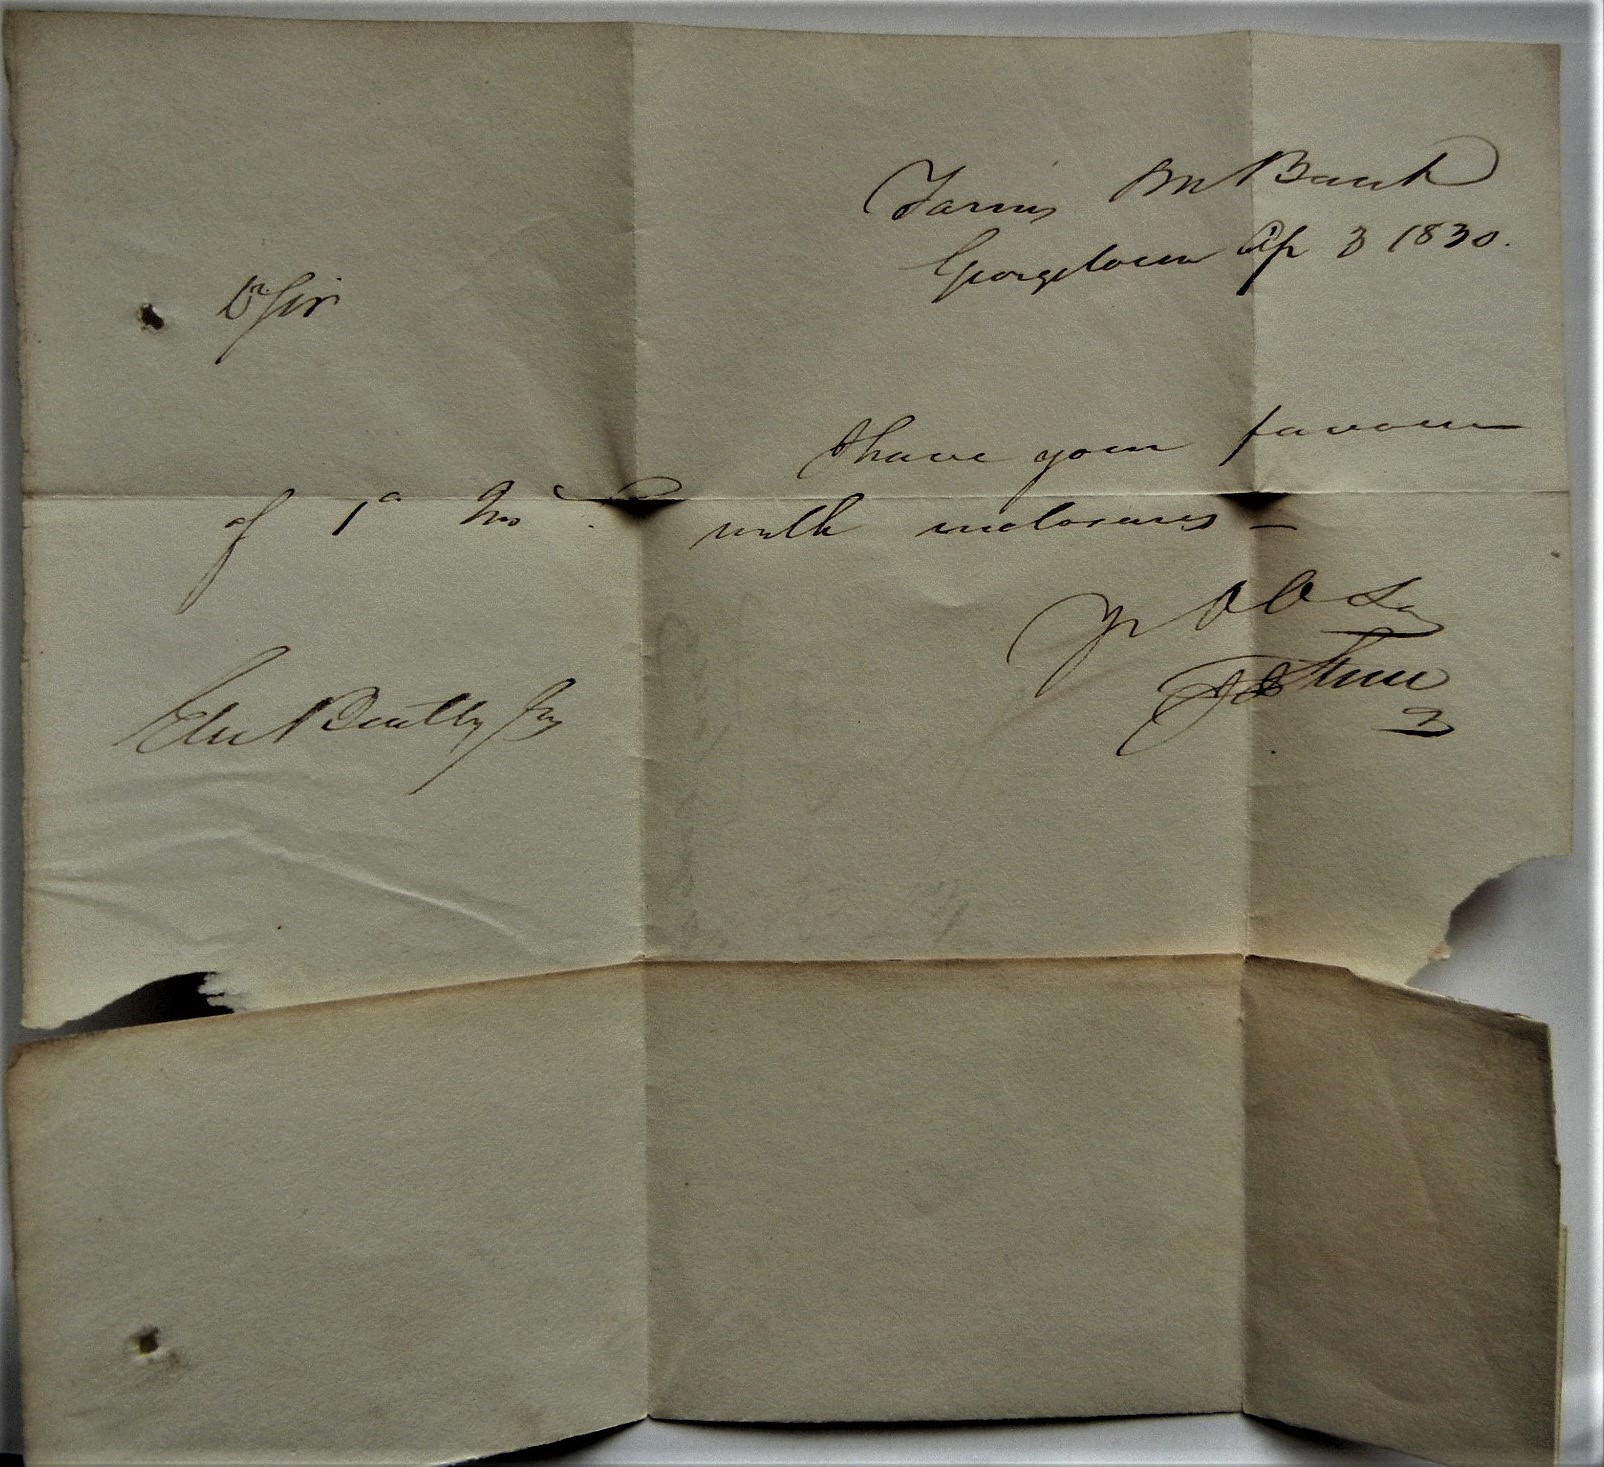 Farms Mc Bank
Georgetown Ap 3 1830.
Dr Sir
I have your favour
of 1st with inclosures —
Yr Ob Se
Bently Esq